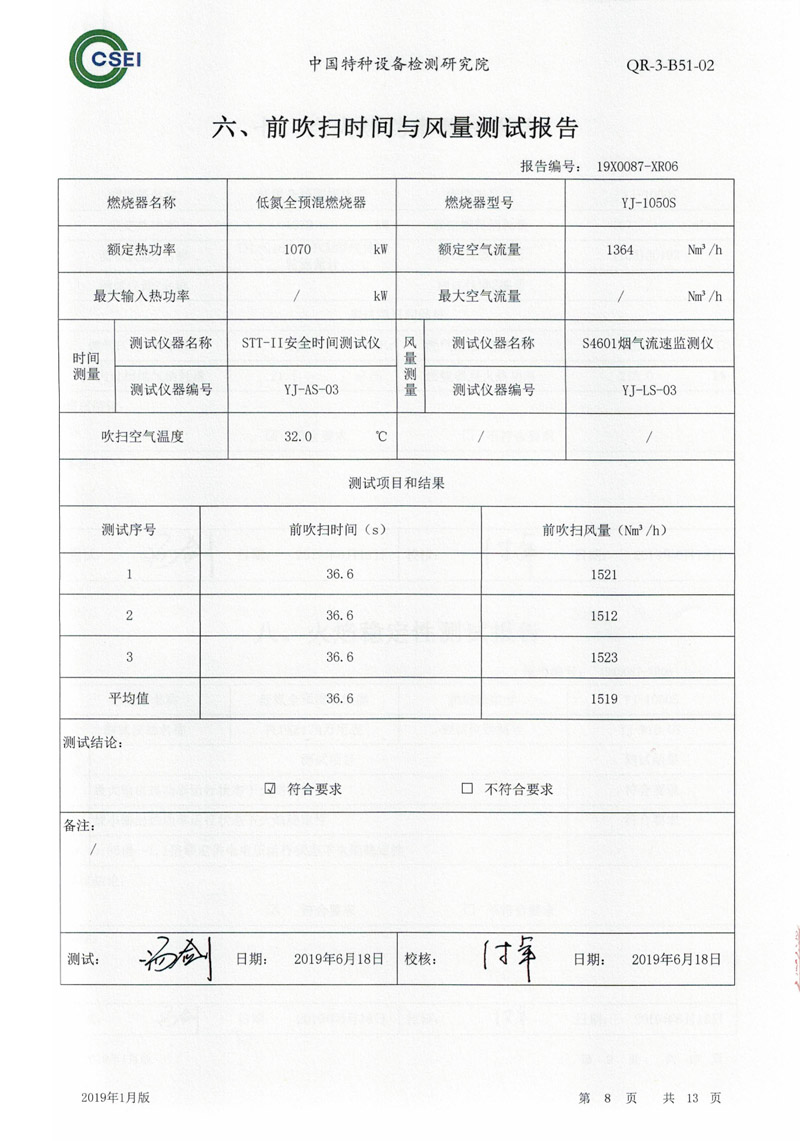 CSEI
中国特种设备检测研究院
QR-3-B51-02
六、前吹扫时间与风量测试报告
报告编号： 19X0087-XR06
燃烧器名称 低氮全预混燃烧器 燃烧器型号 YJ-1050S
额定热功率 1070 kW 额定空气流量 1364 Nm³/h
最大输入热功率 / kW 最大空气流量 / Nm³/h
时间测量 测试仪器名称 STT-II安全时间测试仪 风量测量 测试仪器名称 S4601烟气流速监测仪
测试仪器编号 YJ-AS-03 测试仪器编号 YJ-LS-03
吹扫空气温度 32.0 ℃ / /
测试项目和结果
测试序号 前吹扫时间（s） 前吹扫风量（Nm³/h）
1 36.6 1521
2 36.6 1512
3 36.6 1523
平均值 36.6 1519
测试结论：
☑ 符合要求 ☐ 不符合要求
备注：
/
测试： 日期： 2019年6月18日 校核： 日期： 2019年6月18日
2019年1月版
第 8 页 共 13 页